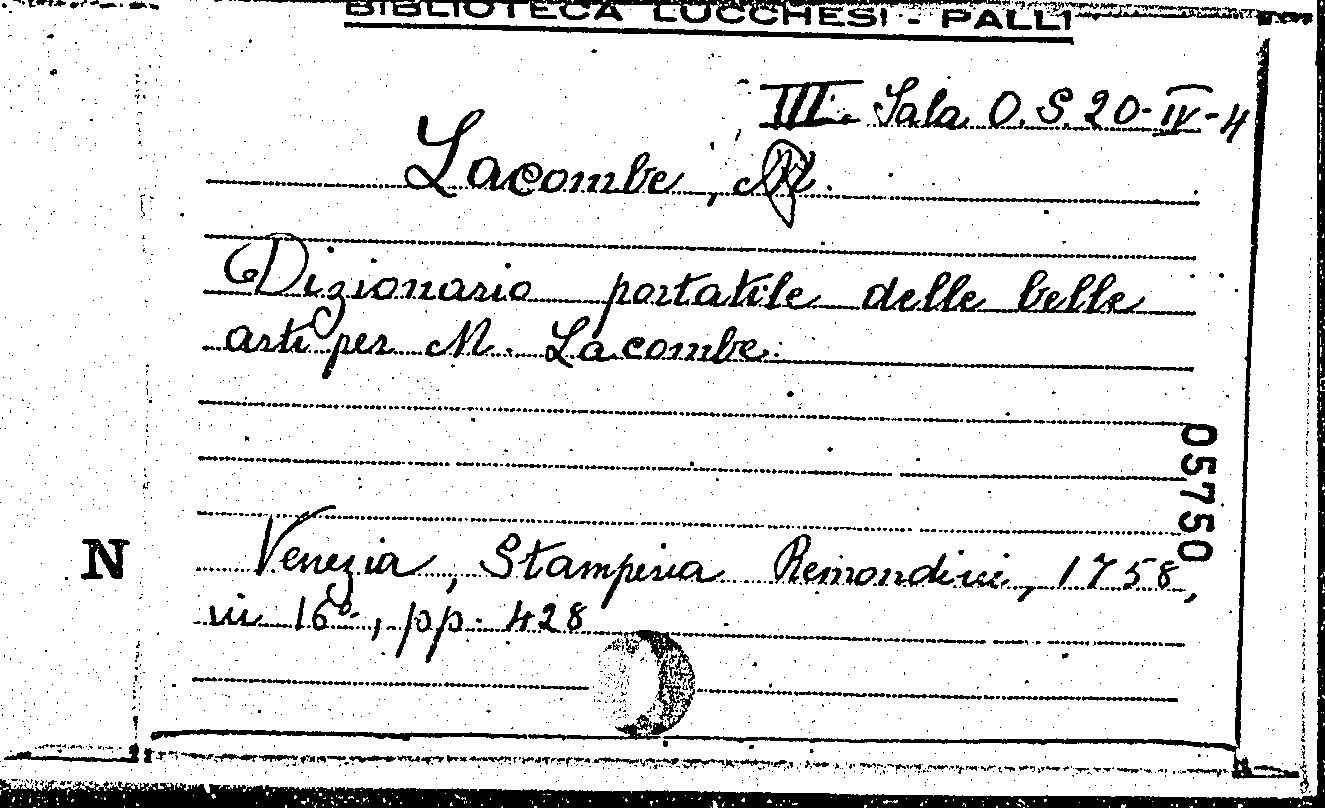 BIBLIOTECA LUCCHESI - PALLI
III. Sala O.S. 20-IV-4
Lacombe,
Dizionario portatile delle belle
arti per M. Lacombe.
05750
N
Venezia, Stamperia Remondini, 1758,
in 16°, pp. 428